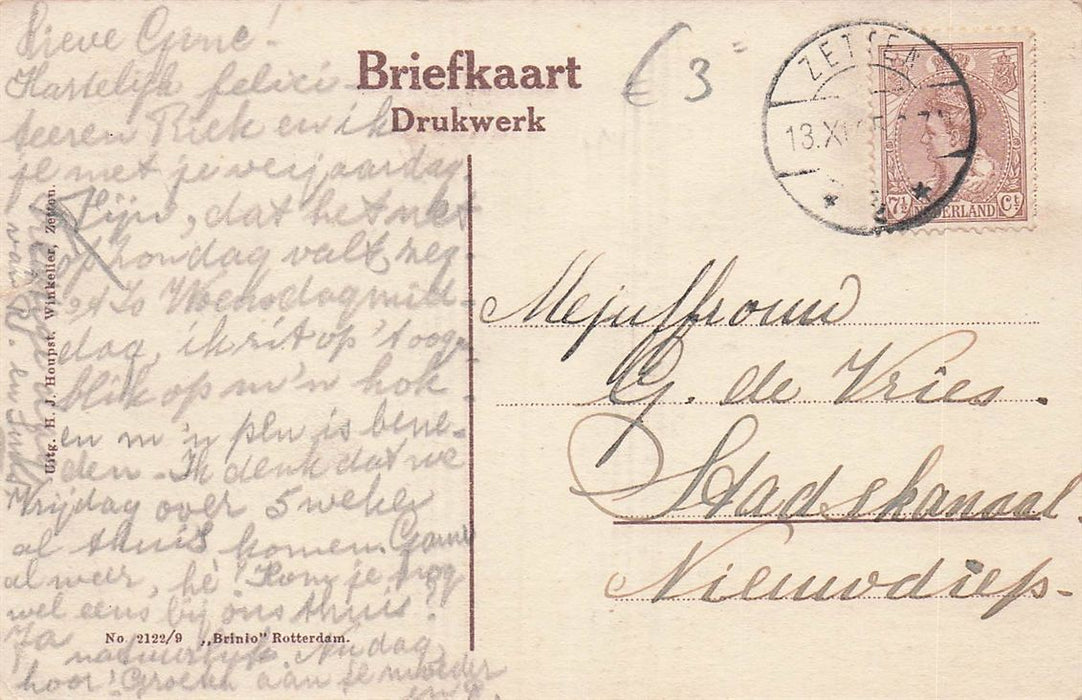 Lieve Gerrie!
Hartelijk felici-
teeren Riek en ik
je met je verjaardag.
Fijn, dat het net
op zondag valt, zeg.
't Is Woensdagmid-
dag, ik zit op 't oogen-
blik op m'n hok
en m'n pen is bene-
den. Ik denk dat we
Vrijdag over 5 weken
al thuis komen.
al weer, hè! Kom je nog
wel eens bij ons thuis?
Ja
natuurlijk. Nu dag
hoor! Groeten aan je moeder
Uitg. H. J. Houpst. Winkelier, Zetten.
No 2122/9 „Brinio" Rotterdam.
Briefkaart
Drukwerk
€ 3 =
ZETTEN
13.XI
7½ NEDERLAND Ct
Mejuffrouw
G. de Vries.
Stadskanaal.
Nieuwdiep.